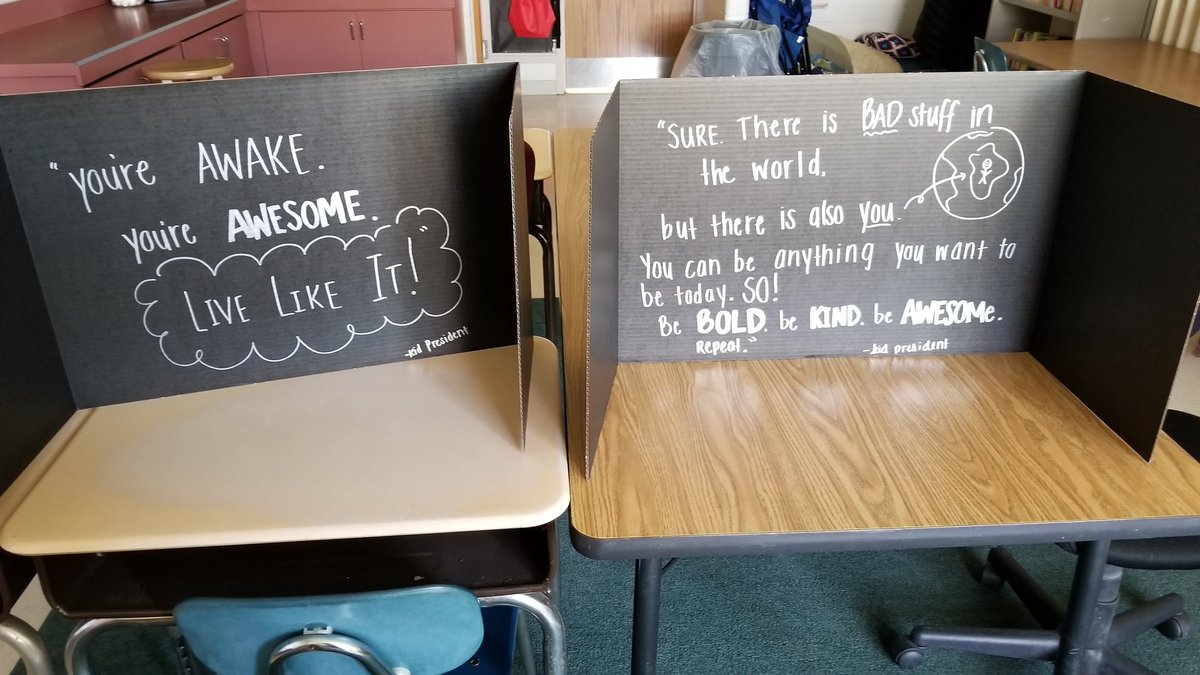 "you're AWAKE.
you're AWESOME.
LIVE LIKE IT!"
-kid President
"SURE. There is BAD stuff in
the world.
but there is also you.
You can be anything you want to
be today. SO!
Be BOLD. be KIND. be AWESOMe.
Repeat."
-kid president